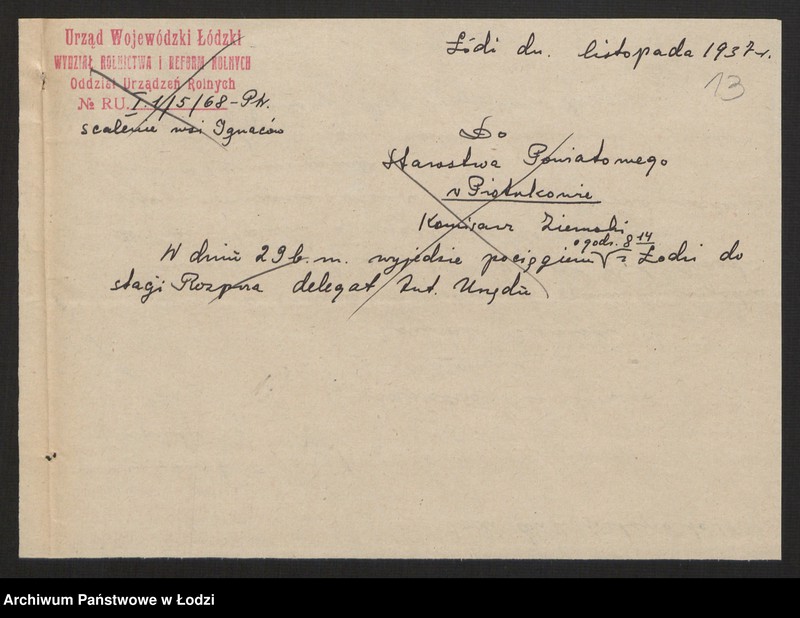 Urząd Wojewódzki Łódzki
WYDZIAŁ ROLNICTWA I REFORM ROLNYCH
Oddział Urządzeń Rolnych
№ RU. I. 1/5/68-Pk.
scalenie wsi Ignaców
Łódź dn. listopada 1937 r.
13
Do
Starostwa Powiatowego
w Piotrkowie
Komisarz Ziemski
o godz. 8 14
W dniu 29 b. m. wyjedzie pociągiem z Łodzi do
stacji Rozprza delegat tut. Urzędu
Archiwum Państwowe w Łodzi